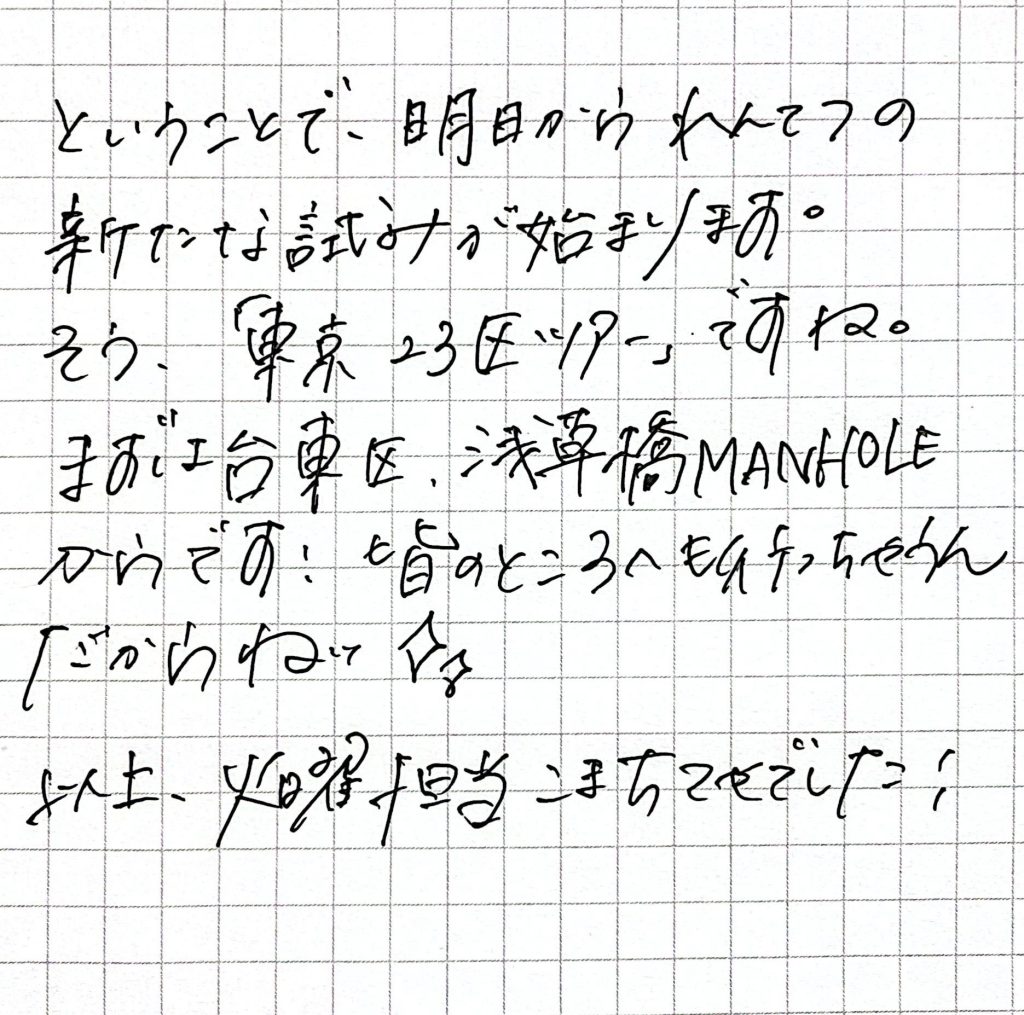 ということで、明日かられんてつの
新たな試みが始まります。
そう、「東京23区ツアー」ですね。
まずは台東区、浅草橋MANHOLE
からです! 皆のところへも行っちゃうん
だからねっ
以上、火曜担当こまちてせでした!